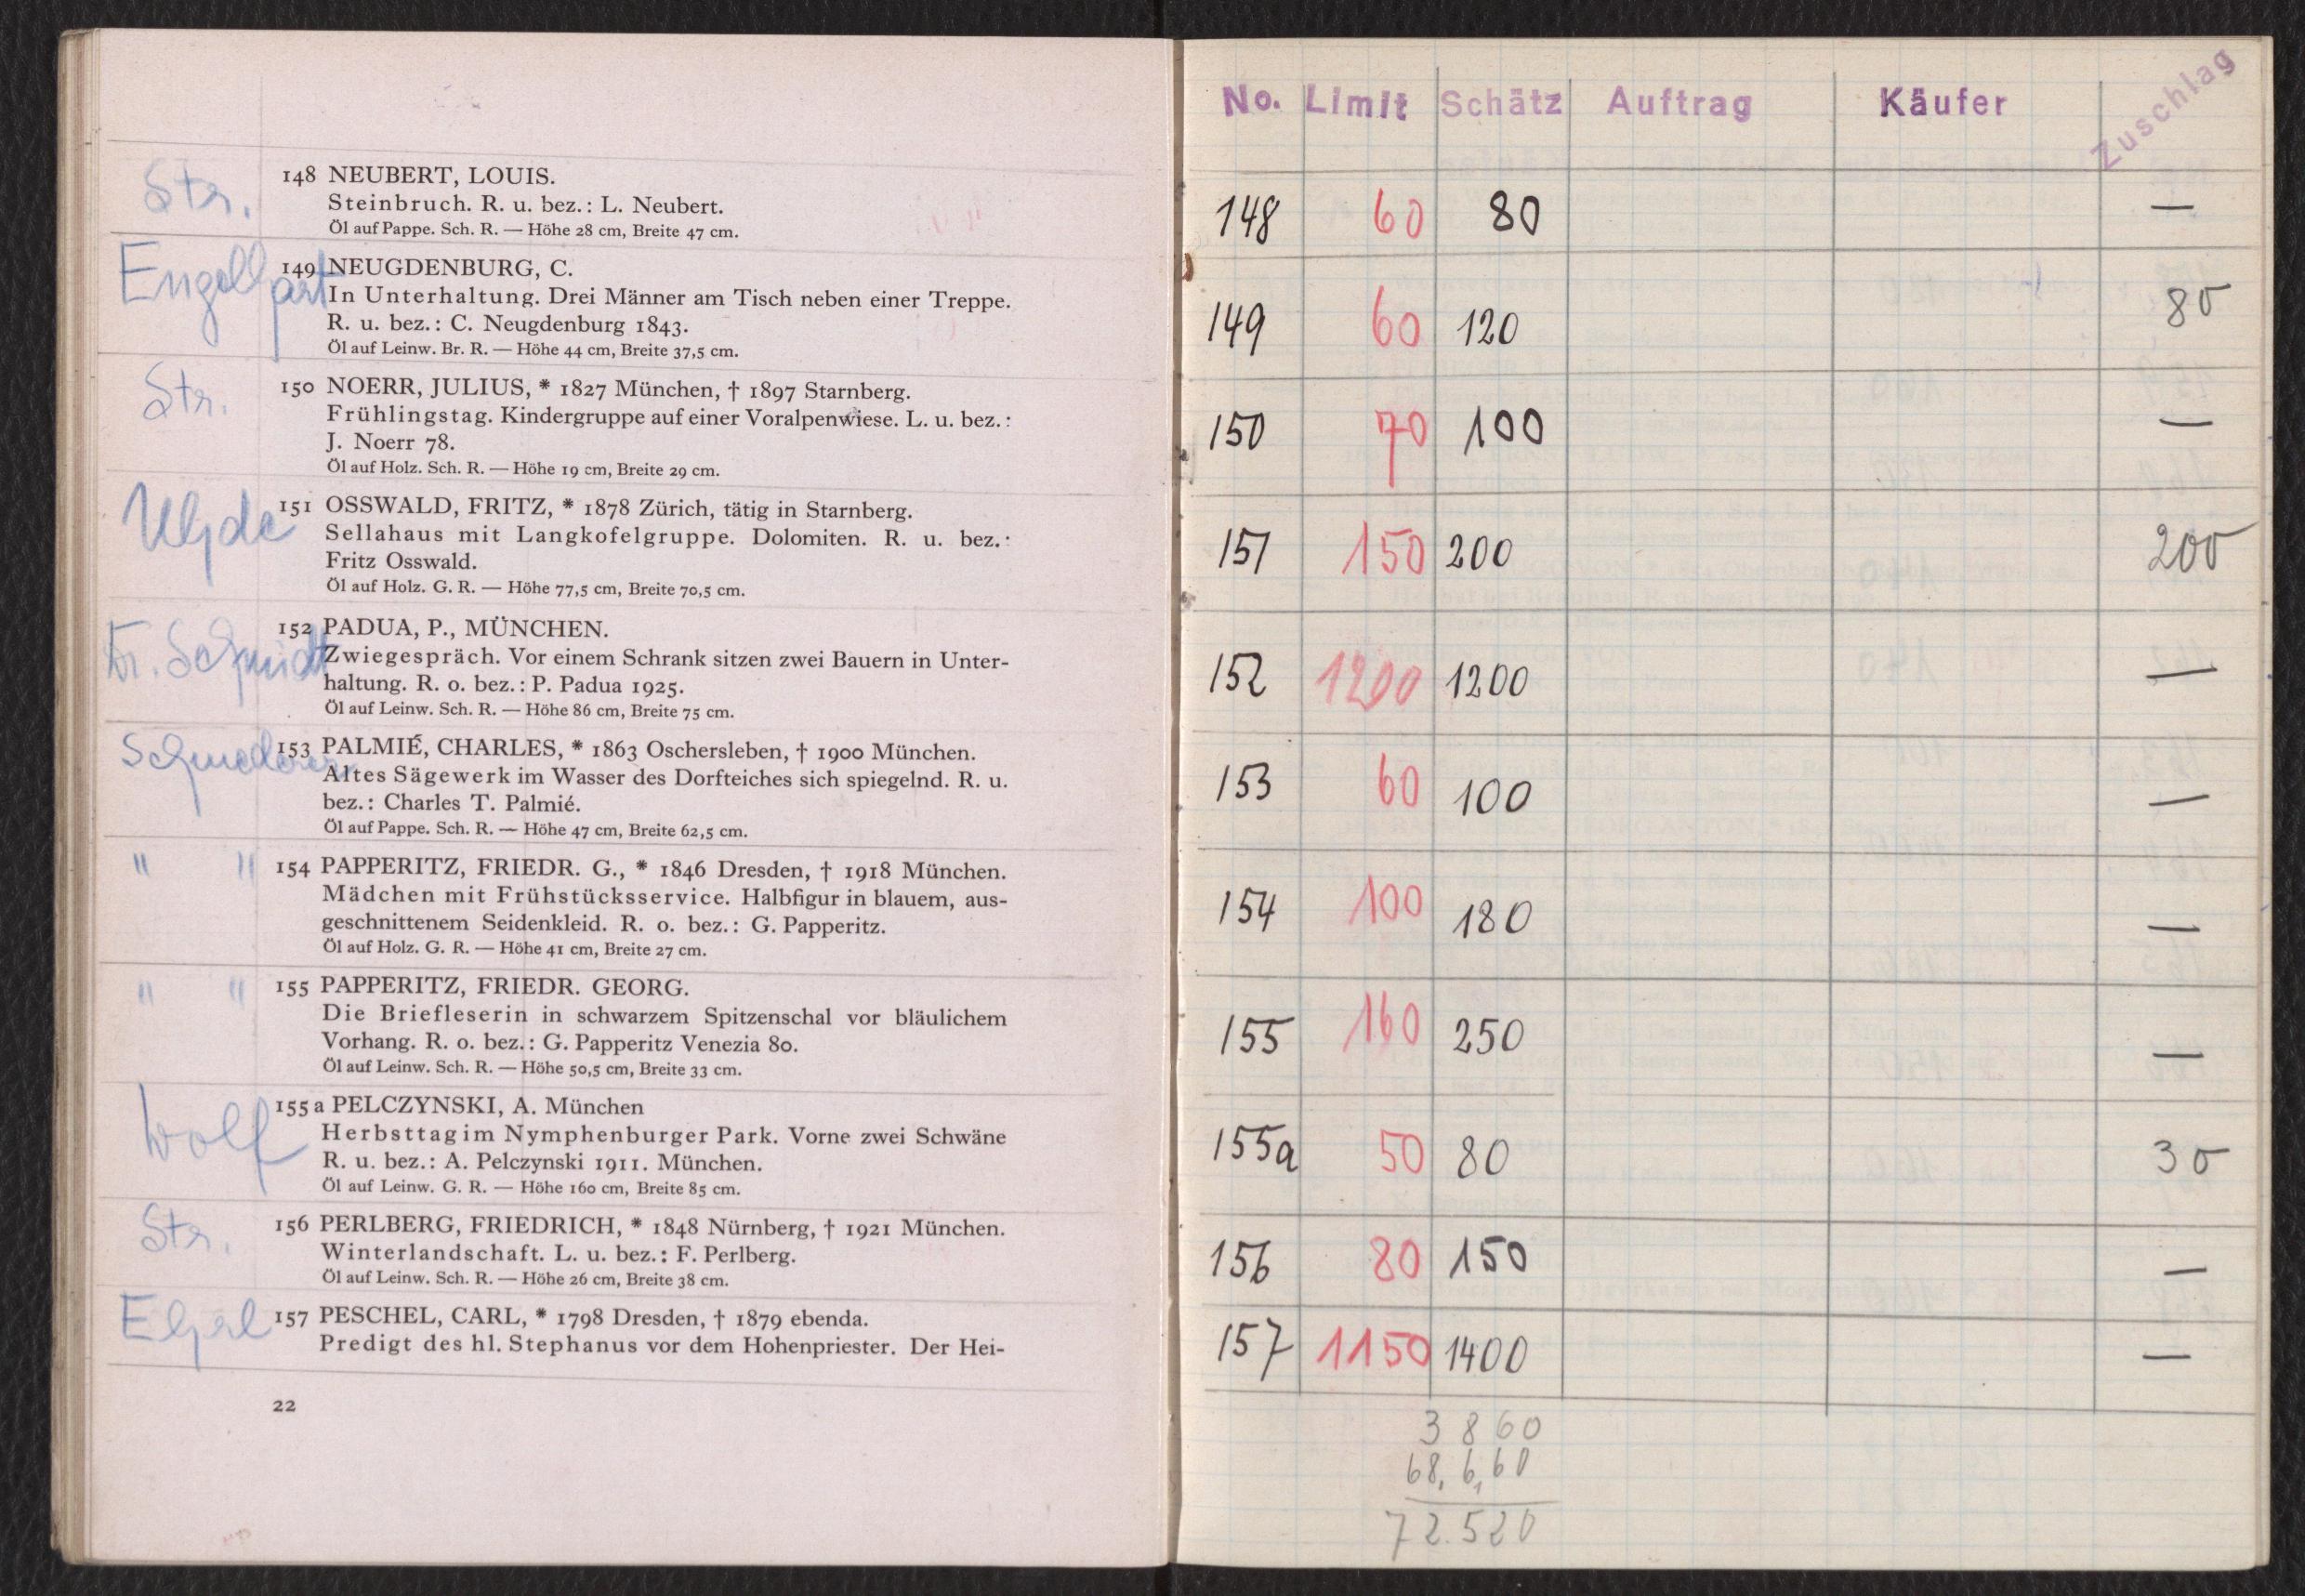 Str.
148 NEUBERT, LOUIS.
Steinbruch. R. u. bez.: L. Neubert.
Öl auf Pappe. Sch. R. — Höhe 28 cm, Breite 47 cm.
Engelhart
149 NEUGDENBURG, C.
In Unterhaltung. Drei Männer am Tisch neben einer Treppe.
R. u. bez.: C. Neugdenburg 1843.
Öl auf Leinw. Br. R. — Höhe 44 cm, Breite 37,5 cm.
Str.
150 NOERR, JULIUS, * 1827 München, † 1897 Starnberg.
Frühlingstag. Kindergruppe auf einer Voralpenwiese. L. u. bez.:
J. Noerr 78.
Öl auf Holz. Sch. R. — Höhe 19 cm, Breite 29 cm.
Uhde
151 OSSWALD, FRITZ, * 1878 Zürich, tätig in Starnberg.
Sellahaus mit Langkofelgruppe. Dolomiten. R. u. bez.:
Fritz Osswald.
Öl auf Holz. G. R. — Höhe 77,5 cm, Breite 70,5 cm.
Fr. Schmidt
152 PADUA, P., MÜNCHEN.
Zwiegespräch. Vor einem Schrank sitzen zwei Bauern in Unter-
haltung. R. o. bez.: P. Padua 1925.
Öl auf Leinw. Sch. R. — Höhe 86 cm, Breite 75 cm.
153 PALMIÉ, CHARLES, * 1863 Oschersleben, † 1900 München.
Altes Sägewerk im Wasser des Dorfteiches sich spiegelnd. R. u.
bez.: Charles T. Palmié.
Öl auf Pappe. Sch. R. — Höhe 47 cm, Breite 62,5 cm.
" "
154 PAPPERITZ, FRIEDR. G., * 1846 Dresden, † 1918 München.
Mädchen mit Frühstücksservice. Halbfigur in blauem, aus-
geschnittenem Seidenkleid. R. o. bez.: G. Papperitz.
Öl auf Holz. G. R. — Höhe 41 cm, Breite 27 cm.
" "
155 PAPPERITZ, FRIEDR. GEORG.
Die Briefleserin in schwarzem Spitzenschal vor bläulichem
Vorhang. R. o. bez.: G. Papperitz Venezia 80.
Öl auf Leinw. Sch. R. — Höhe 50,5 cm, Breite 33 cm.
Wolf
155a PELCZYNSKI, A. München
Herbsttag im Nymphenburger Park. Vorne zwei Schwäne
R. u. bez.: A. Pelczynski 1911. München.
Öl auf Leinw. G. R. — Höhe 160 cm, Breite 85 cm.
Str.
156 PERLBERG, FRIEDRICH, * 1848 Nürnberg, † 1921 München.
Winterlandschaft. L. u. bez.: F. Perlberg.
Öl auf Leinw. Sch. R. — Höhe 26 cm, Breite 38 cm.
157 PESCHEL, CARL, * 1798 Dresden, † 1879 ebenda.
Predigt des hl. Stephanus vor dem Hohenpriester. Der Hei-
22
No. Limit Schätz Auftrag Käufer Zuschlag
148 60 80 —
149 60 120 80
150 70 100 —
151 150 200 200
152 1200 1200 —
153 60 100 —
154 100 180 —
155 160 250 —
155a 50 80 30
156 80 150 —
157 1150 1400 —
3 8 60
68, 6,60
72.520